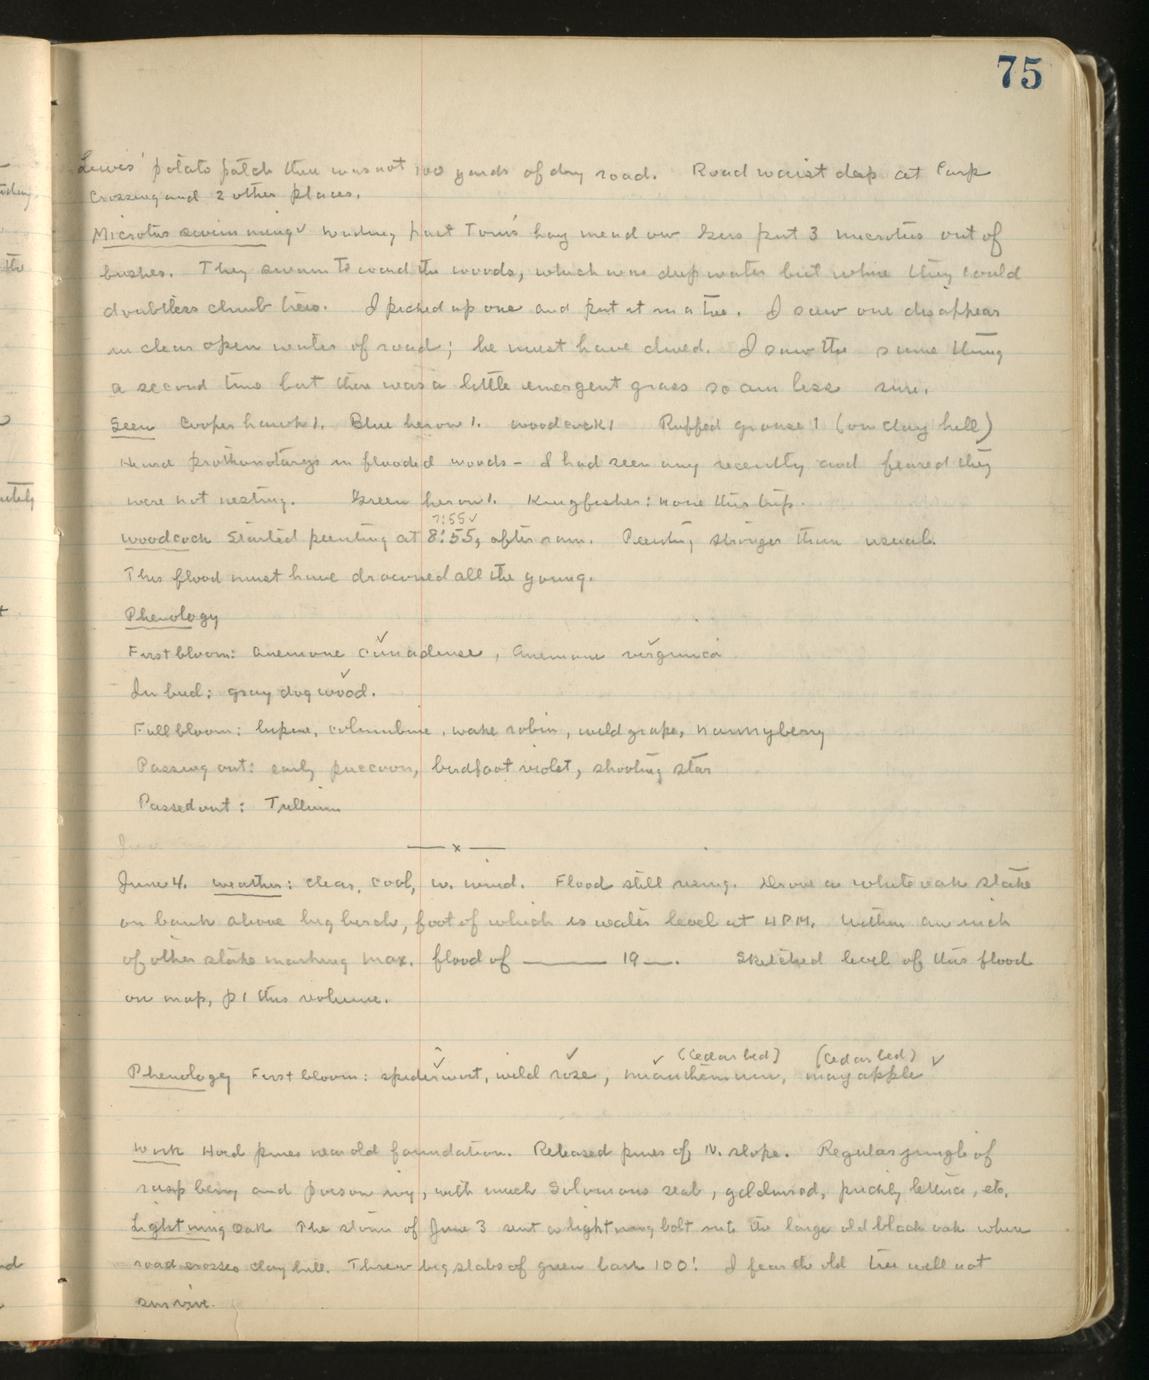 75
Lewis' potato patch there was not 100 yards of dry road. Road waist deep at Carp
Crossing and 2 other places.
Microtus swimming ✓ Wading past Tom's hay meadow Gus put 3 microtus out of
bushes. They swam toward the woods, which was deep water but where they could
doubtless climb trees. I picked up one and put it in a tree. I saw one disappear
in clear open water of road; he must have dived. I saw the same thing
a second time but there was a little emergent grass so am less sure.
Seen Cooper hawk 1. Blue heron 1. woodcock 1 Ruffed grouse 1 (on clay hill)
Heard prothonotarys in flooded woods - I had seen any recently and feared they
were not nesting. Green heron 1. Kingfisher: none this trip.
7:55 ✓
Woodcock Started peenting at 8:55, after rain. Peenting stronger than usual.
This flood must have drowned all the young.
Phenology
First bloom: Anemone canadense ✓, Anemone virginica ✓
In bud: gray dogwood ✓.
Full bloom: lupine, columbine, wake robin, wild grape, nannyberry
Passing out: early puccoon, birdfoot violet, shooting star
Passed out: Trillium
— x —
June 4. weather: clear, cool, w. wind. Flood still rising. Drove a white oak stake
on bank above big birch, foot of which is water level at 4 PM. Within an inch
of other stake marking max. flood of ——— 19 —. Sketched level of this flood
on map, p 1 this volume.
(Cedar bed) (Cedar bed)
Phenology First bloom: spiderwort ✓, wild rose ✓, maianthemum ✓, may apple ✓
Work Hoed pines near old foundation. Released pines of N. slope. Regular jungle of
raspberry and poison ivy, with much Solomons seal, goldenrod, prickly lettuce, etc.
Lightning Oak The storm of June 3 sent a lightning bolt into the large old black oak where
road crosses clay hill. Threw big slabs of green bark 100'! I fear the old tree will not
survive.